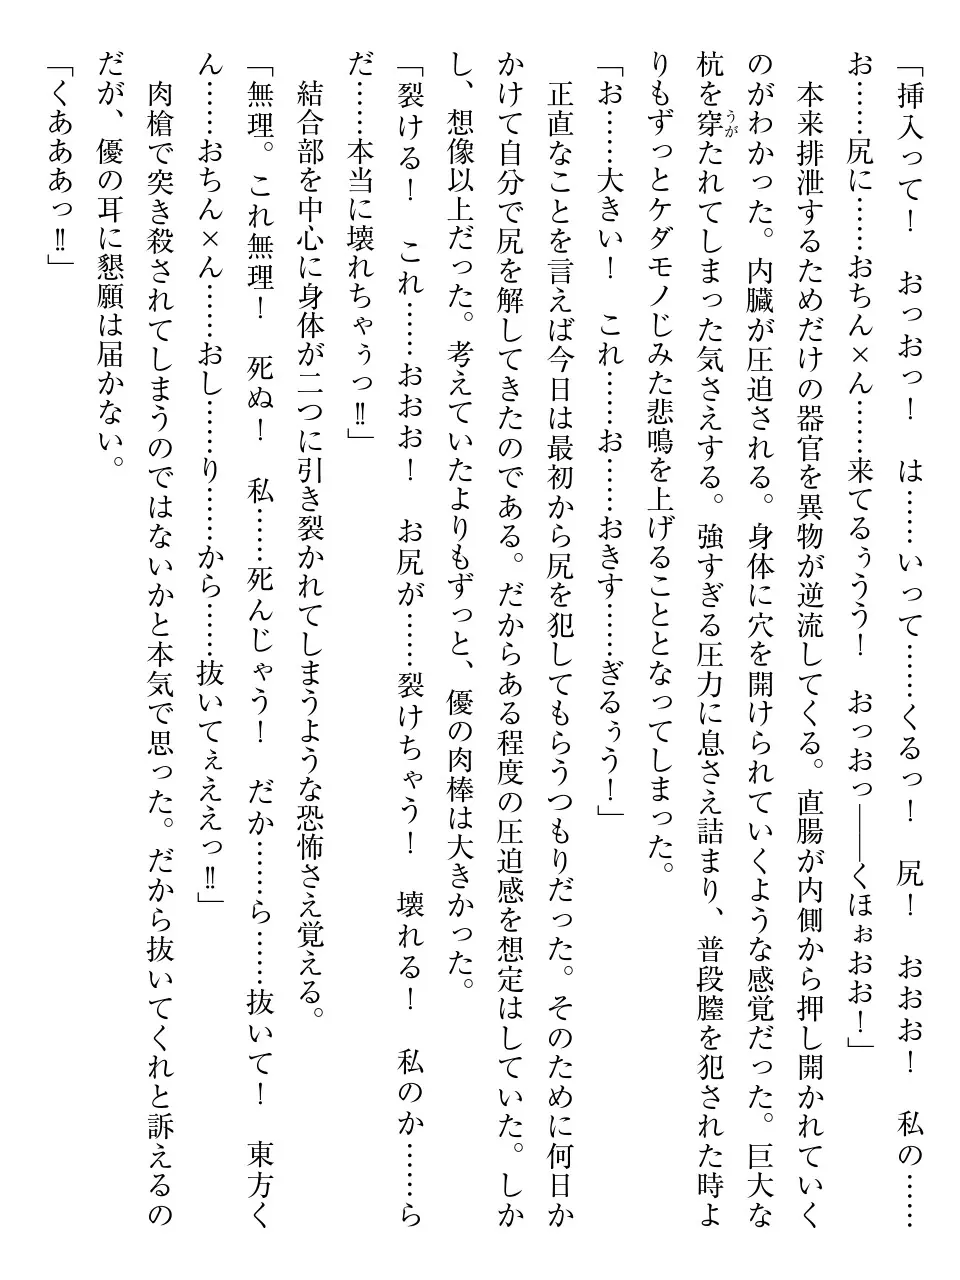 「挿入って！　おっおっ！　は……いって……くるっ！　尻！　おおお！　私の……
お……尻に……おちん×ん……来てるぅうう！　おっおっ――くほぉおお！」
　本来排泄するためだけの器官を異物が逆流してくる。直腸が内側から押し開かれていく
のがわかった。内臓が圧迫される。身体に穴を開けられていくような感覚だった。巨大な
杭を穿たれてしまった気さえする。強すぎる圧力に息さえ詰まり、普段膣を犯された時よ
りもずっとケダモノじみた悲鳴を上げることとなってしまった。
「お……大きい！　これ……お……おきす……ぎるぅう！」
　正直なことを言えば今日は最初から尻を犯してもらうつもりだった。そのために何日か
かけて自分で尻を解してきたのである。だからある程度の圧迫感を想定はしていた。しか
し、想像以上だった。考えていたよりもずっと、優の肉棒は大きかった。
「裂ける！　これ……おおお！　お尻が……裂けちゃう！　壊れる！　私のか……ら
だ……本当に壊れちゃぅっ‼」
　結合部を中心に身体が二つに引き裂かれてしまうような恐怖さえ覚える。
「無理。これ無理！　死ぬ！　私……死んじゃう！　だか……ら……抜いて！　東方く
ん……おちん×ん……おし……り……から……抜いてぇええっ‼」
　肉槍で突き殺されてしまうのではないかと本気で思った。だから抜いてくれと訴えるの
だが、優の耳に懇願は届かない。
「くあああっ‼」